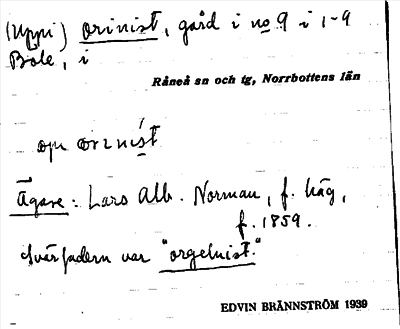 (Uppi) orinist, gård i no 9 i 1-9
Böle, i
Råneå sn och tg, Norrbottens län
orinist
Ägare: Lars Alb. Norman, f. häg,
f. 1859.
Svärfadern var "orgelnist."
EDVIN BRÄNNSTRÖM 1939